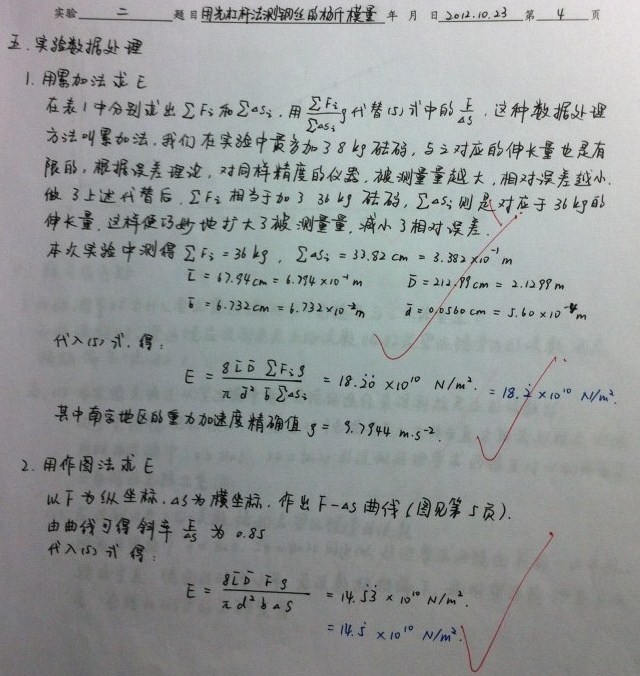 实验 二 题目 用光杠杆法测钢丝的杨氏模量 年 月 日 2012.10.23 第 4 页
五. 实验数据处理
1. 用累加法求E
在表1中分别求出 ΣFi 和 ΣΔSi, 用 ΣFi/ΣΔSi g 代替(5)式中的 F/ΔS, 这种数据处理
方法叫累加法, 我们在实验中最多加了8kg砝码, 与之对应的伸长量也是有
限的, 根据误差理论, 对同样精度的仪器, 被测量量越大, 相对误差越小.
做了上述代替后, ΣFi 相当于加了36kg砝码, ΣΔSi 则是对应于36kg的
伸长量. 这样便巧妙地扩大了被测量量, 减小了相对误差.
本次实验中测得 ΣFi = 36 kg , ΣΔSi = 33.82 cm = 3.382×10⁻¹ m
L̄ = 67.94cm = 6.794×10⁻¹ m D̄ = 212.99cm = 2.1299 m
b̄ = 6.732cm = 6.732×10⁻² m d̄ = 0.0560cm = 5.60×10⁻⁴ m
代入(5)式, 得:
E = 8L̄D̄ ΣFi g / π d̄² b̄ ΣΔSi = 18.20 ×10¹⁰ N/m². = 18.2 ×10¹⁰ N/m².
其中南京地区的重力加速度精确值 g = 9.7944 m·s⁻².
2. 用作图法求E
以F为纵坐标, ΔS为横坐标, 作出 F-ΔS 曲线 (图见第5页).
由曲线可得斜率 F/ΔS 为 0.85
代入(5)式得:
E = 8L̄D̄ F g / π d² b ΔS = 14.53 ×10¹⁰ N/m².
= 14.5 ×10¹⁰ N/m².